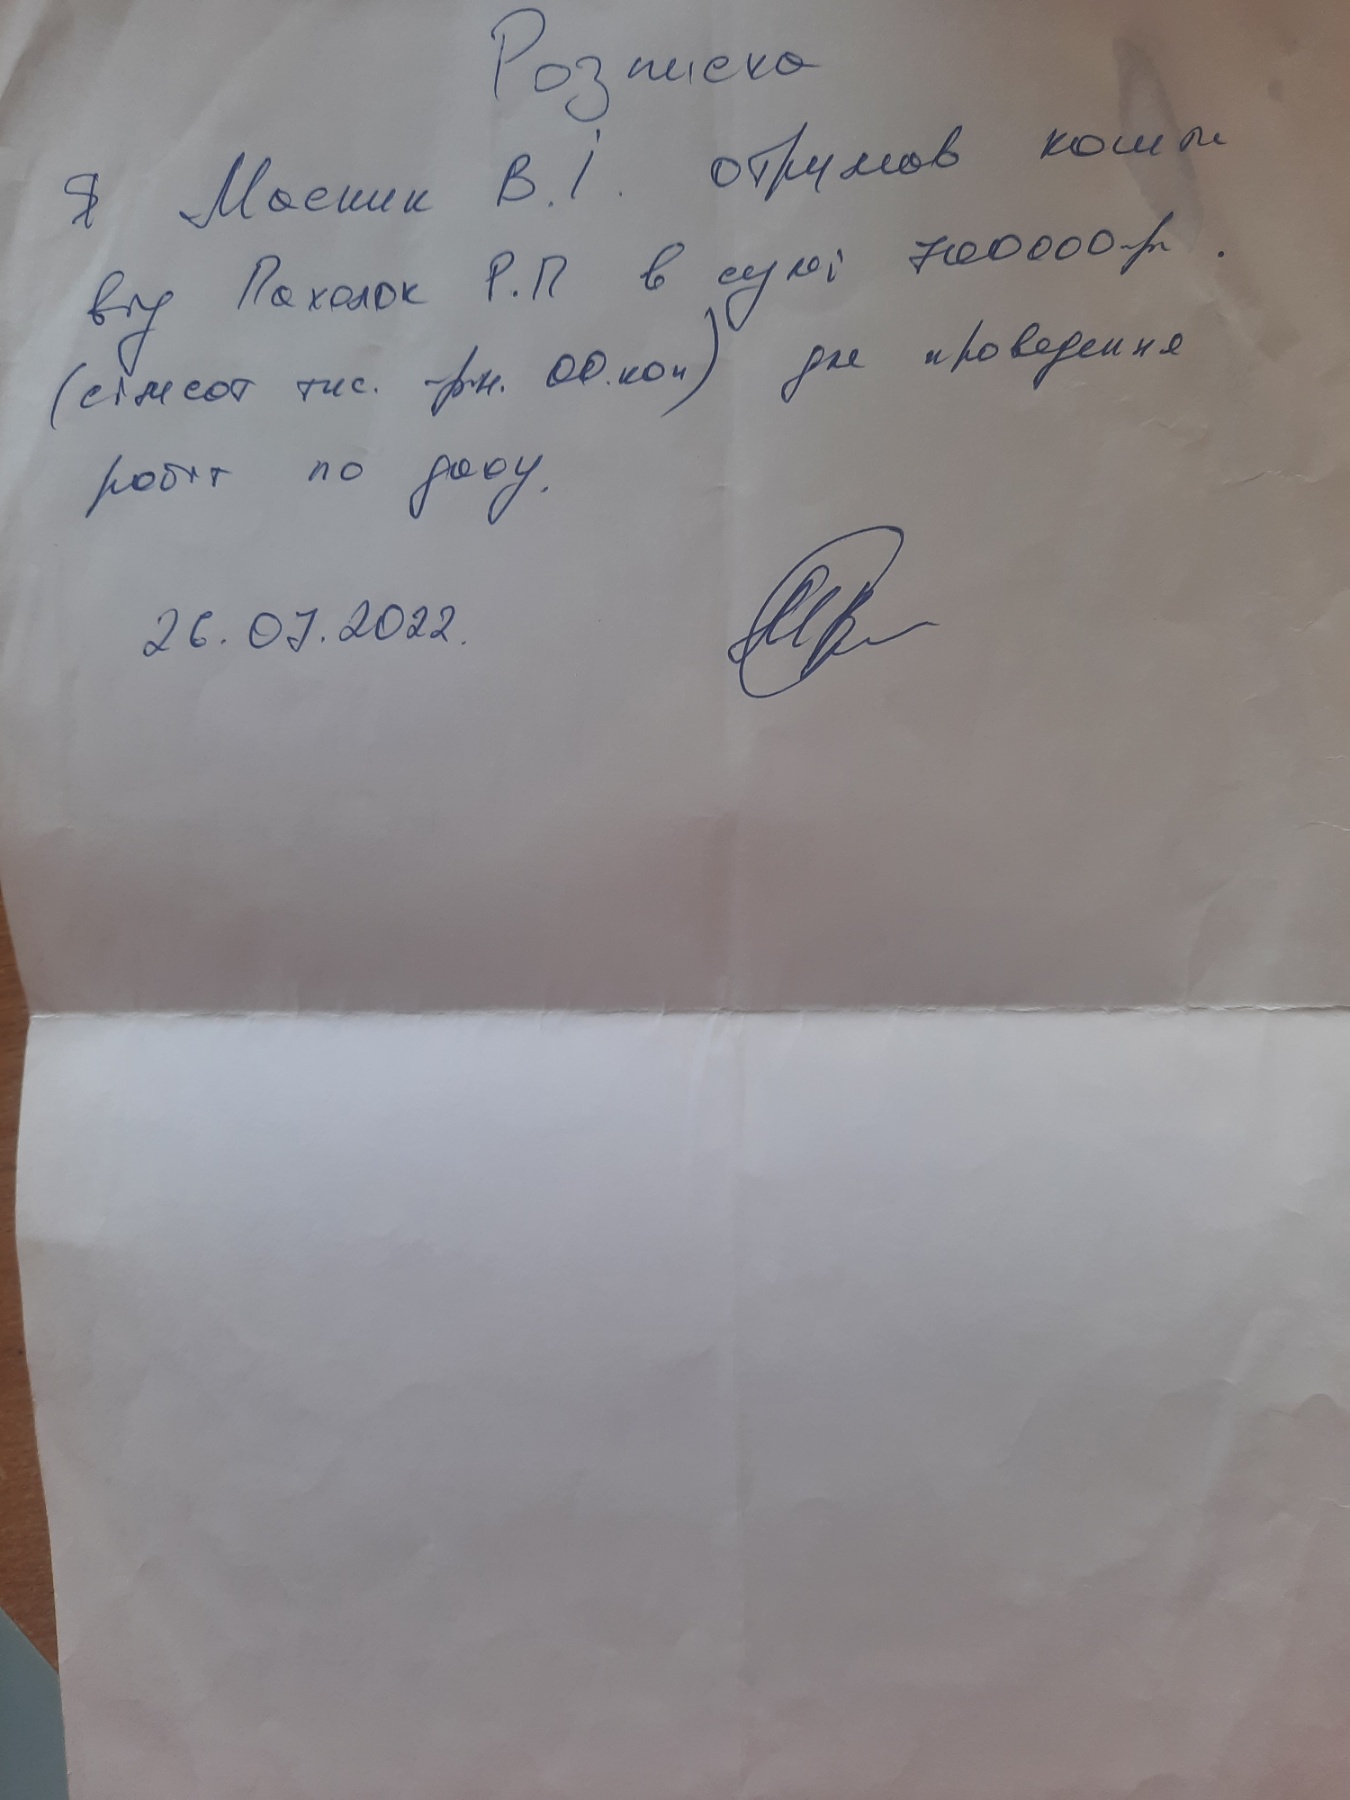 Розписка
Я Масник В.І. отримав кошти
від Пахолок Р.П в сумі 700000грн.
(сімсот тис. грн. 00.коп) для проведення
робіт по даху.
26.07.2022.